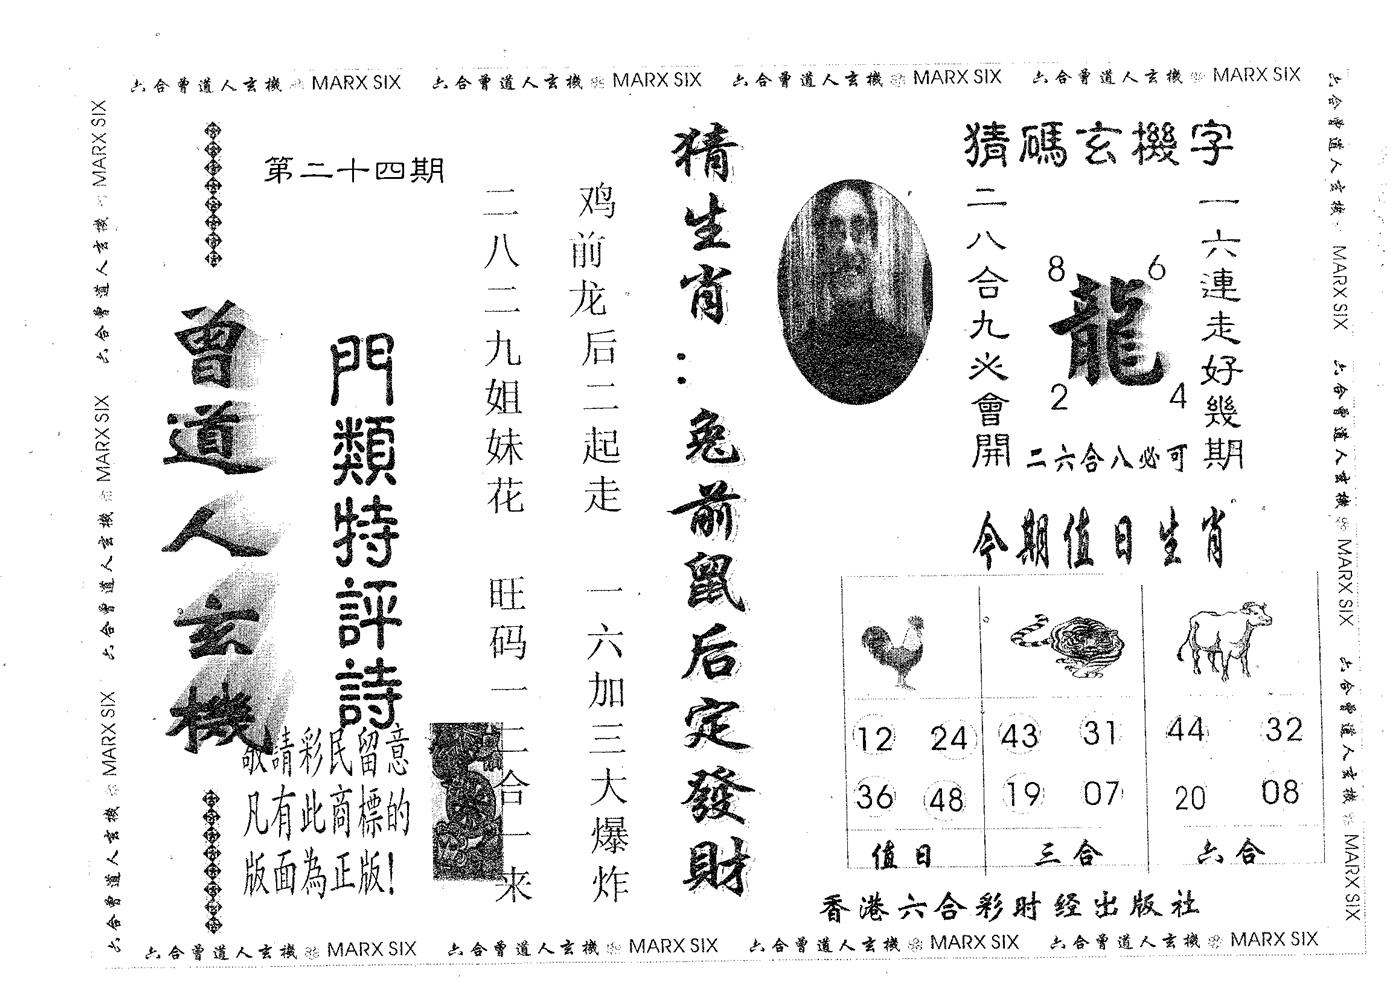 六合曾道人玄機 MARX SIX 六合曾道人玄機 MARX SIX 六合曾道人玄機 MARX SIX 六合曾道人玄機 MARX SIX
六合曾道人玄機 MARX SIX 六合曾道人玄機 MARX SIX 六合曾道人玄機 MARX SIX
六合曾道人玄機 MARX SIX 六合曾道人玄機 MARX SIX 六合曾道人玄機 MARX SIX
第二十四期
曾道人玄機
門類特評詩
敬請彩民留意
凡有此商標的
版面為正版!
鸡前龙后二起走 一六加三大爆炸
二八二九姐妹花 旺码一二合一来
猜生肖：兔前鼠后定發財
猜碼玄機字
一六連走好幾期
二八合九必會開
8 6
龍
2 4
二六合八必可
今期值日生肖
12 24 43 31 44 32
36 48 19 07 20 08
值日 三合 六合
香港六合彩时经出版社
六合曾道人玄機 MARX SIX 六合曾道人玄機 MARX SIX 六合曾道人玄機 MARX SIX 六合曾道人玄機 MARX SIX